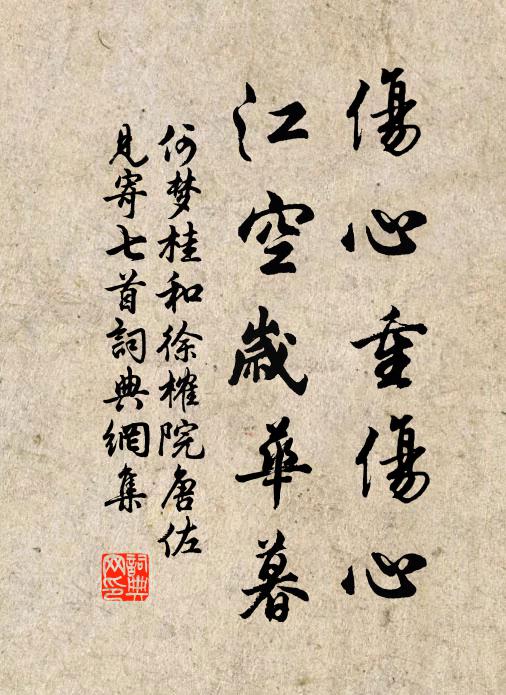 傷心重傷心
江空歲華暮
何梦桂和徐榷院唐佐
見寄七首詞典網集
詞典
网印